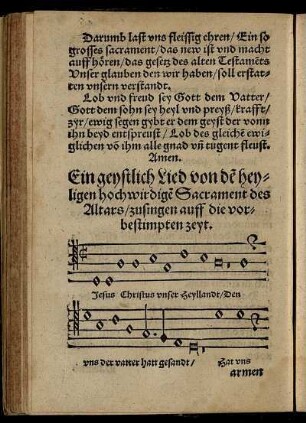 Darumb last vns fleissig ehren/ Ein so
grosses sacrament/ das new ist vnd macht
auff hören/ das gesetz des alten Testamēts
Vnser glauben den wir haben/ soll erstat-
ten vnsern verstandt.
Lob vnd freud sey Gott dem Vatter/
Gott dem sohn sey heyl vnd preyß/ krafft/
zyr/ ewig segen gybt er dem geyst der vonn
ihn beyd entspreust/ Lob des gleichē ewi-
glichen võ ihm alle gnad vñ tugent fleust.
Amen.
Ein geystlich Lied von dē hey-
ligen hochwirdigē Sacrament des
Altars/ zusingen auff die vor-
bestimpten zeyt.
Jesus Christus vnser Heyllandt/ Den
vns der vatter hatt gesandt/ Hat vns
armen